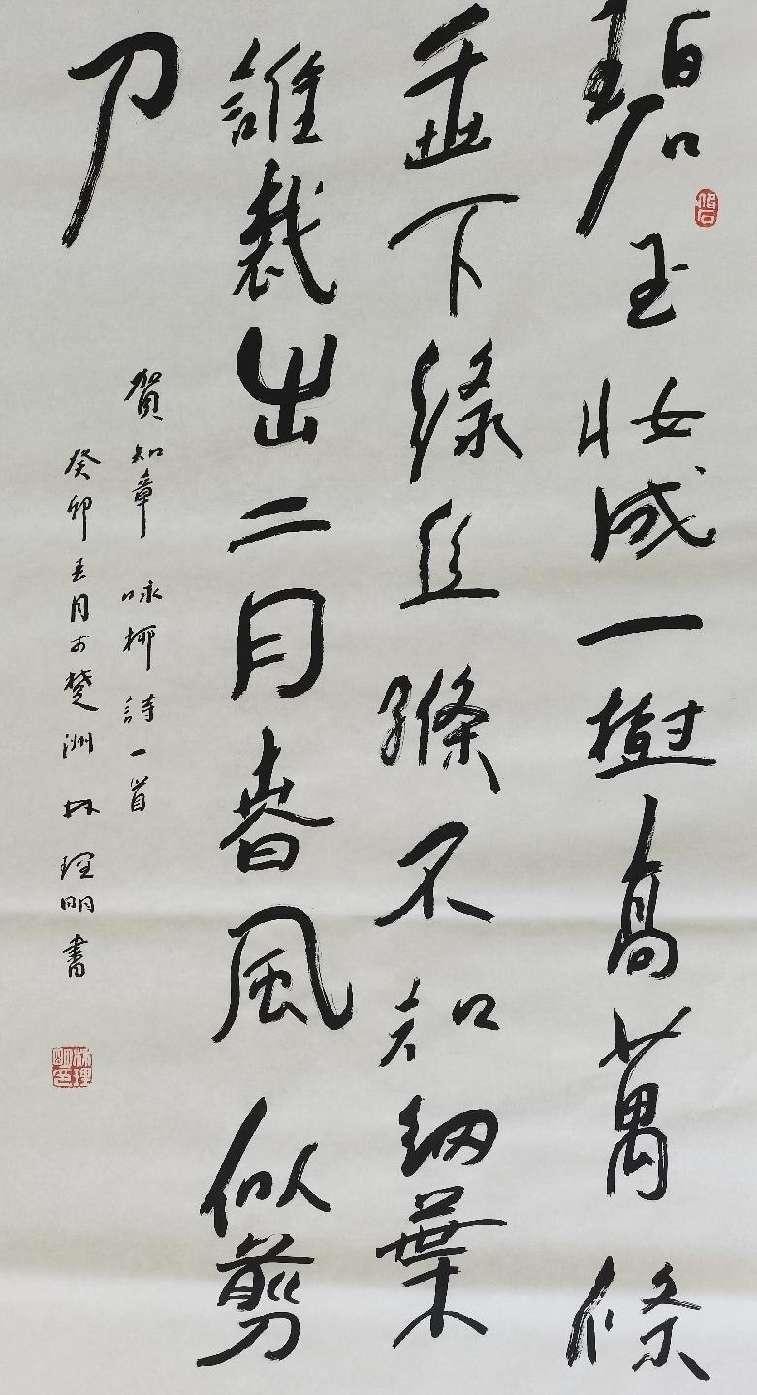 碧玉妝成一樹高萬條
垂下綠丝縧不知細葉
誰裁出二月春風似剪
刀
賀知章 咏柳 詩一首
癸卯五月於楚洲 林理明書
林理明印